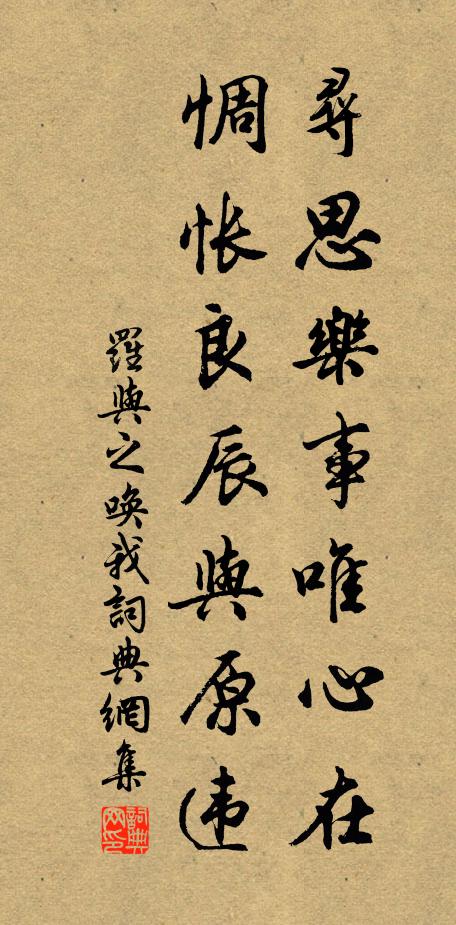 尋思樂事唯心在
惆怅良辰與原违
羅與之唤我詞典網集
詞典网印